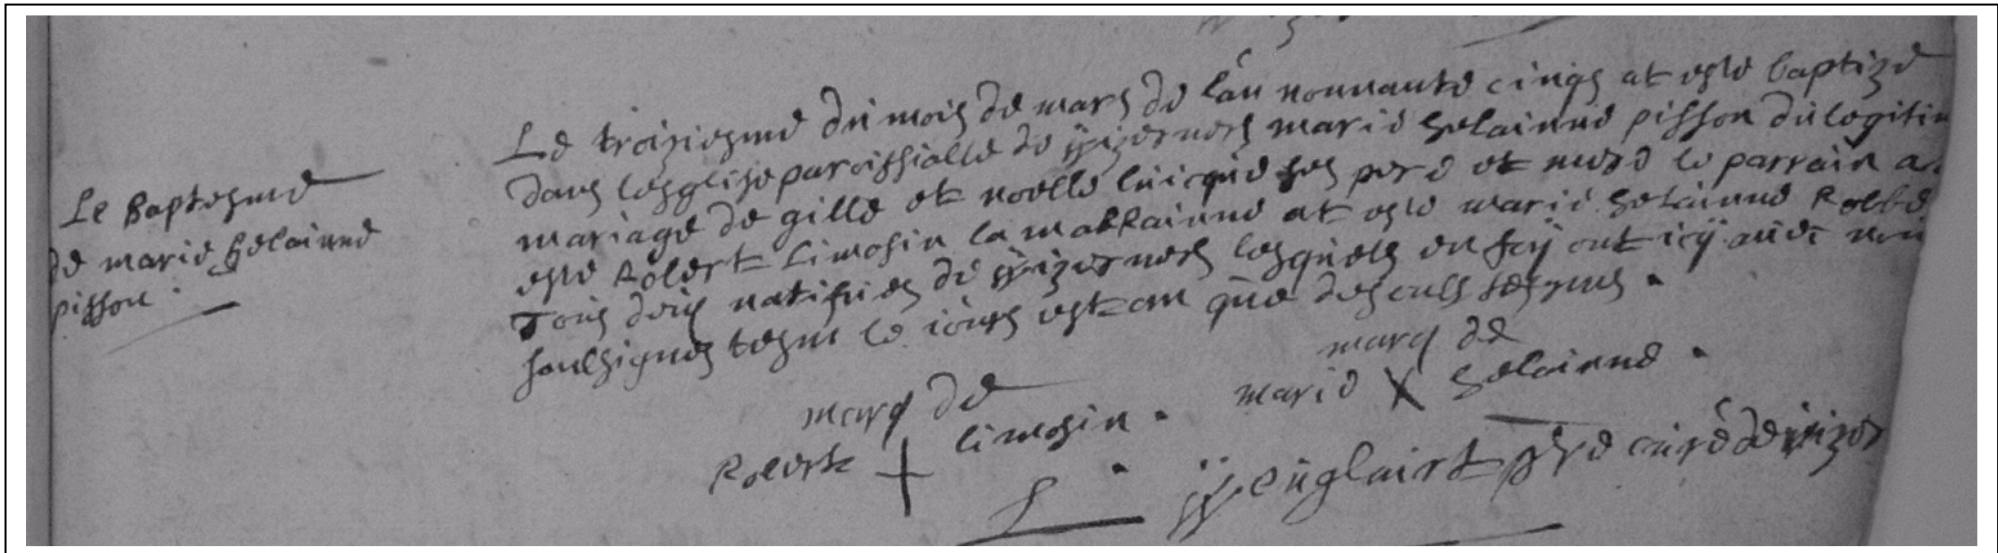 Le Baptesme
de marie helainne
pisson
Le troiziesme du mois de mars de l'an nonnante cincq at esté baptizé
dans l'esglise paroissialle de wizernes marie helainne pisson du legitim
mariage de gille et noelle luicque ses pere et mere le parrain a
esté Robert Limosin la marrainne at esté marie helainne Robbe
Tous deux natifues de wizernes lesquels en foÿ ont icÿ auec moi
soulsignes tesm le jours et an que descults tesmes
marq de
Robert + limosin
marq de
marie X helainne
pbre curé de wizer